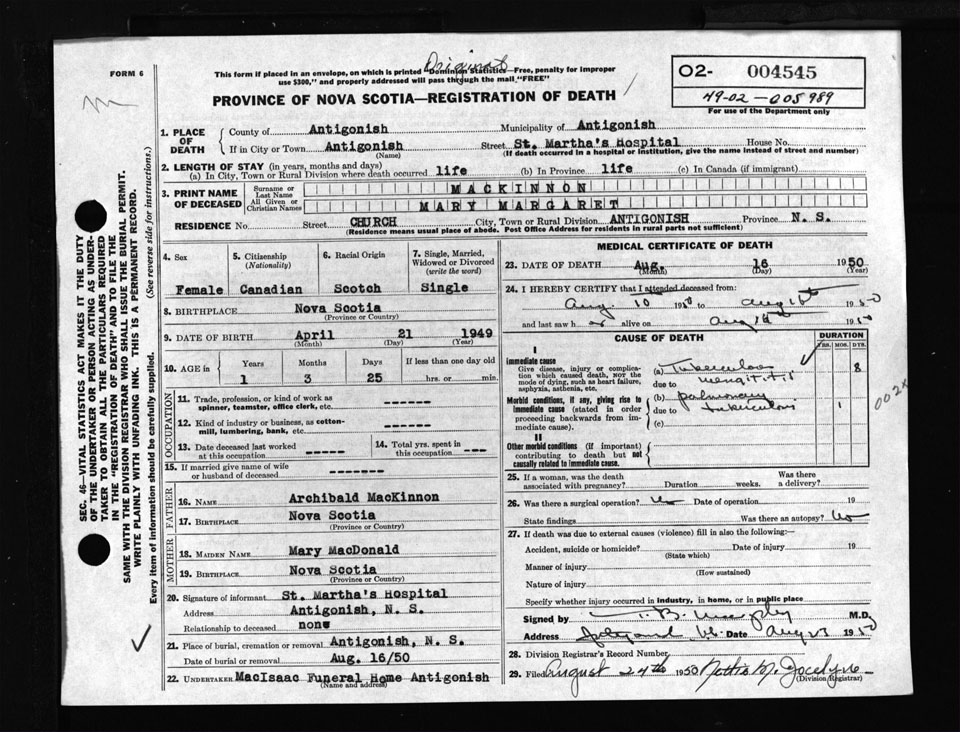 Original
FORM 6
This form if placed in an envelope, on which is printed "Dominion Statistics—Free, penalty for improper
use $300," and properly addressed will pass through the mail "FREE"
PROVINCE OF NOVA SCOTIA—REGISTRATION OF DEATH
O2- 004545
49-02-005989
For use of the Department only
1. PLACE OF DEATH
County of Antigonish Municipality of Antigonish
If in City or Town Antigonish Street St. Martha's Hospital House No.
(Name) (If death occurred in a hospital or institution, give the name instead of street and number)
2. LENGTH OF STAY (in years, months and days)
(a) In City, Town or Rural Division where death occurred life (b) In Province life (c) In Canada (if immigrant)
3. PRINT NAME OF DECEASED
Surname or Last Name MACKINNON
All Given or Christian Names MARY MARGARET
RESIDENCE No. Street CHURCH City, Town or Rural Division ANTIGONISH Province N. S.
(Residence means usual place of abode. Post Office Address for residents in rural parts not sufficient)
4. Sex
Female
5. Citizenship
(Nationality)
Canadian
6. Racial Origin
Scotch
7. Single, Married,
Widowed or Divorced
(write the word)
Single
8. BIRTHPLACE Nova Scotia
(Province or Country)
9. DATE OF BIRTH April 21 1949
(Month) (Day) (Year)
10. AGE in Years Months Days If less than one day old
1 3 25 hrs. or min.
OCCUPATION
11. Trade, profession, or kind of work as
spinner, teamster, office clerk, etc. ------
12. Kind of industry or business, as cotton-
mill, lumbering, bank, etc. ------
13. Date deceased last worked
at this occupation -----
14. Total yrs. spent in
this occupation ---
15. If married give name of wife
or husband of deceased -------
FATHER
16. NAME Archibald MacKinnon
17. BIRTHPLACE Nova Scotia
(Province or Country)
MOTHER
18. MAIDEN NAME Mary MacDonald
19. BIRTHPLACE Nova Scotia
(Province or Country)
20. Signature of informant St. Martha's Hospital
Address Antigonish, N. S.
Relationship to deceased none
21. Place of burial, cremation or removal Antigonish, N. S.
Date of burial or removal Aug. 16/50
22. UNDERTAKER MacIsaac Funeral Home Antigonish
(Name and address)
MEDICAL CERTIFICATE OF DEATH
23. DATE OF DEATH Aug. 16 1950
(Month) (Day) (Year)
24. I HEREBY CERTIFY that I attended deceased from:
Aug. 10 1950 to Aug 16 1950
and last saw h alive on Aug 1950
CAUSE OF DEATH
DURATION
YRS. MOS. DYS.
I
Immediate cause
Give disease, injury or complica-
tion which caused death, NOT the
mode of dying, such as heart failure,
asphyxia, asthenia, etc.
(a) Tuberculous 8
due to meningitis
Morbid conditions, if any, giving rise to
immediate cause (stated in order
proceeding backwards from im-
mediate cause).
(b) pulmonary
due to tuberculosis 1
(c)
002x
II
Other morbid conditions (if important)
contributing to death but not
causally related to immediate cause.
25. If a woman, was the death
associated with pregnancy? Duration weeks. Was there
a delivery?
26. Was there a surgical operation? no Date of operation 19
State findings Was there an autopsy? no
27. If death was due to external causes (violence) fill in also the following:—
Accident, suicide or homicide? Date of injury 19
(State which)
Manner of injury
(How sustained)
Nature of injury
Specify whether injury occurred in industry, in home, or in public place
Signed by B. Murphy M.D.
Address Date Aug 23 1950
28. Division Registrar's Record Number
29. Filed August 24th 1950
(Division Registrar)
SEC. 46—VITAL STATISTICS ACT MAKES IT THE DUTY
OF THE UNDERTAKER OR PERSON ACTING AS UNDER-
TAKER TO OBTAIN ALL THE PARTICULARS REQUIRED
IN THE "REGISTRATION OF DEATH" AND TO FILE THE
SAME WITH THE DIVISION REGISTRAR WHO SHALL ISSUE THE BURIAL PERMIT.
WRITE PLAINLY WITH UNFADING INK. THIS IS A PERMANENT RECORD.
Every item of information should be carefully supplied. (See reverse side for instructions.)